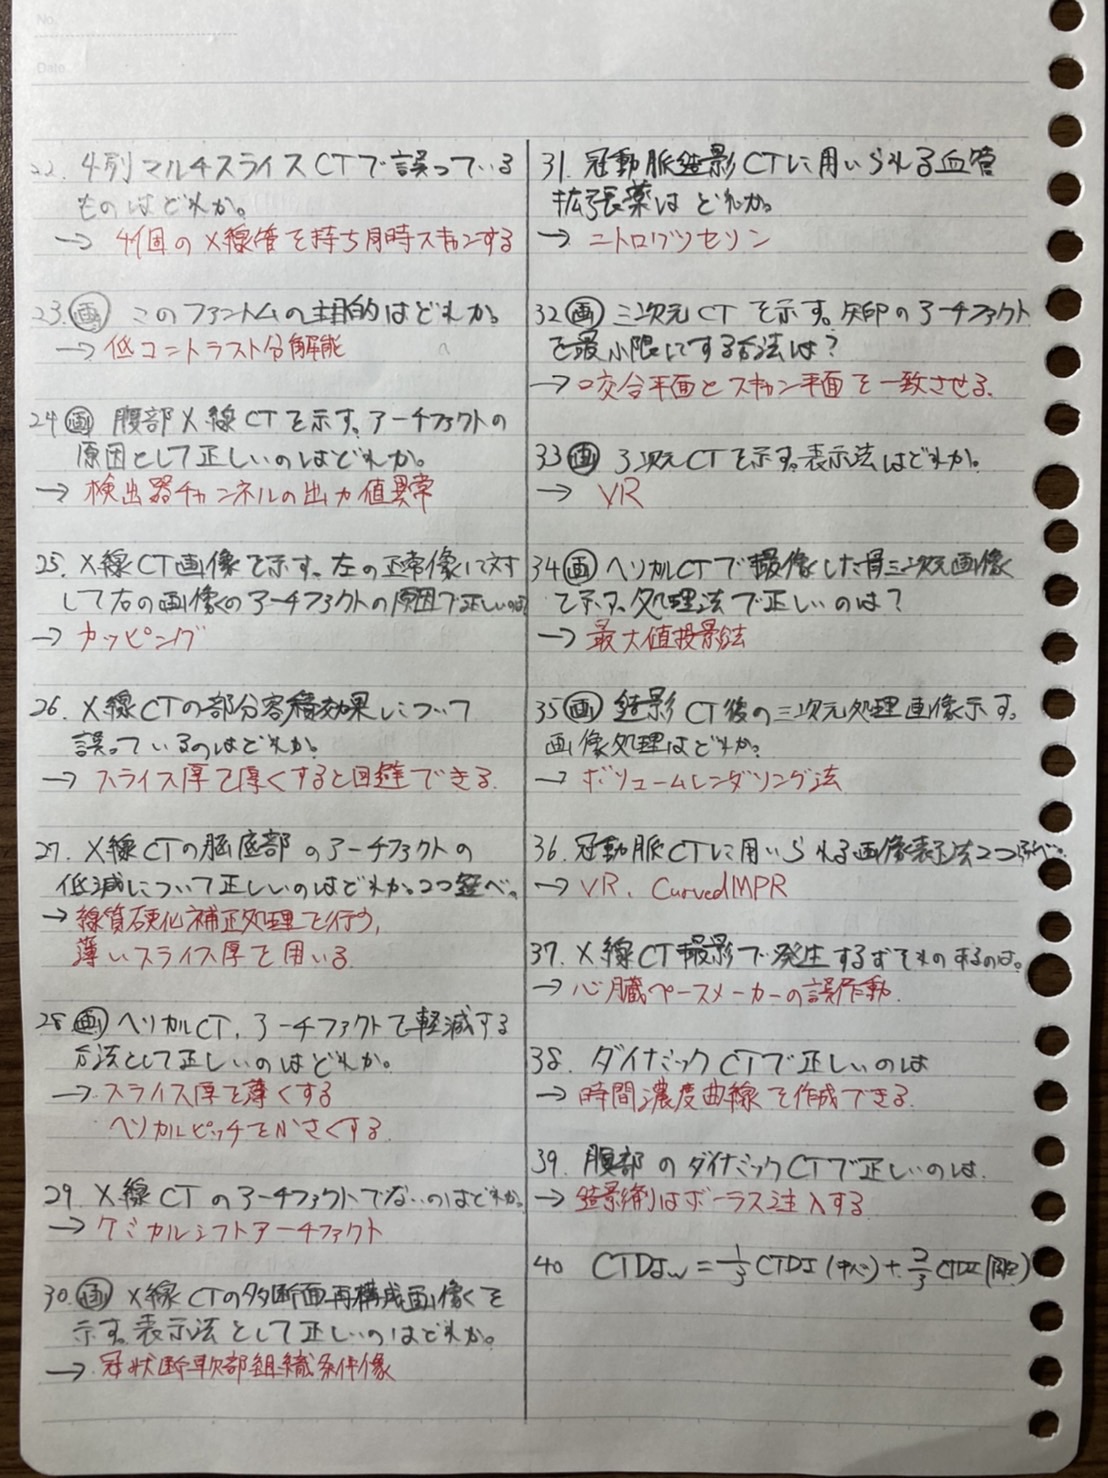 No.
Date
22. 4列マルチスライスCTで誤っている
ものはどれか。
→ 4個のX線管を持ち同時スキャンする
23.画 このファントムの主目的はどれか。
→ 低コントラスト分解能
24 画 腹部X線CTを示す。アーチファクトの
原因として正しいのはどれか。
→ 検出器チャンネルの出力値異常
25. X線CT画像を示す。左の正常像に対
して右の画像のアーチファクトの原因で正しいのは
→ カッピング
26. X線CTの部分容積効果について
誤っているのはどれか。
→ スライス厚を厚くすると回避できる.
27. X線CTの脳底部のアーチファクトの
低減について正しいのはどれか。2つ選べ。
→ 線質硬化補正処理を行う,
薄いスライス厚を用いる.
28 画 ヘリカルCT, アーチファクトを軽減する
方法として正しいのはどれか。
→ スライス厚を薄くする
ヘリカルピッチを小さくする.
29. X線CTのアーチファクトでないのはどれか。
→ ケミカルシフトアーチファクト
30.画 X線CTの多断面再構成画像を
示す。表示法として正しいのはどれか。
→ 冠状断軟部組織条件像
31. 冠動脈造影CTに用いられる血管
拡張薬はどれか。
→ ニトログリセリン
32 画 三次元CTを示す。矢印のアーチファクト
を最小限にする方法は?
→ 咬合平面とスキャン平面を一致させる.
33 画 3次元CTを示す。表示法はどれか。
→ VR
34 画 ヘリカルCTで撮像した骨三次元画像
を示す。処理法で正しいのは?
→ 最大値投影法
35 画 造影CT後の三次元処理画像示す。
画像処理はどれか。
→ ボリュームレンダリング法
36. 冠動脈CTに用いられる画像表示法2つ選べ。
→ VR, CurvedMPR
37. X線CT撮影で発生するおそれのあるのは。
→ 心臓ペースメーカーの誤作動.
38. ダイナミックCTで正しいのは
→ 時間濃度曲線を作成できる.
39. 腹部のダイナミックCTで正しいのは.
→ 造影剤はボーラス注入する
40 CTDIw = 1/3 CTDI (中心) + 2/3 CTDI (周辺)